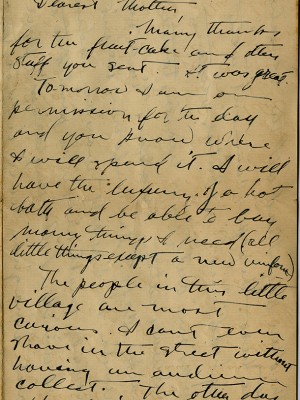 Dearest Mother
Many thanks
for the fruit-cake and other
stuff you sent. It was great.
Tomorrow I am on
permission for the day
and you know where
I will spend it. I will
have the luxury of a hot
bath and be able to buy
many things I need (all
little things except a new uniform)
The people in this little
village are most
curious. I can't even
shave in the street without
having an audience
collect. The other day